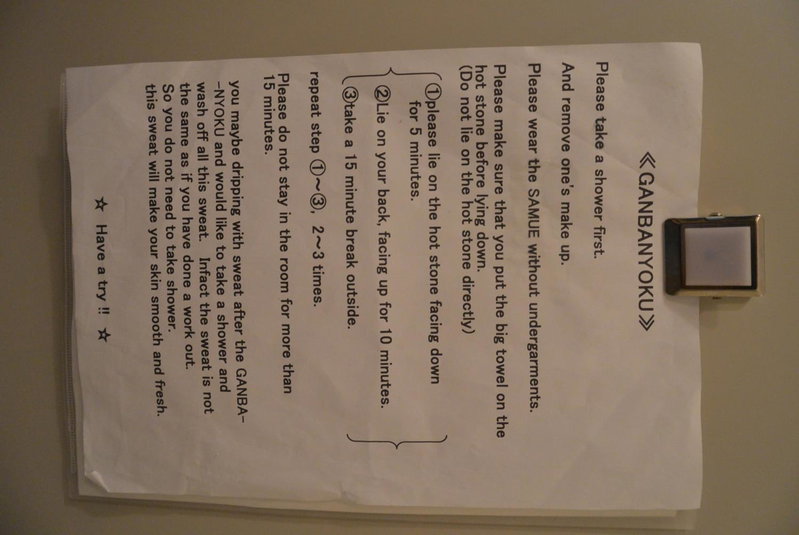 ≪GANBANYOKU≫
Please take a shower first.
And remove one's make up.
Please wear the SAMUE without undergarments.
Please make sure that you put the big towel on the
hot stone before lying down.
(Do not lie on the hot stone directly)
①please lie on the hot stone facing down
for 5 minutes.
②Lie on your back, facing up for 10 minutes.
③take a 15 minute break outside.
repeat step ①～③, 2～3 times.
Please do not stay in the room for more than
15 minutes.
you maybe dripping with sweat after the GANBA-
-NYOKU and would like to take a shower and
wash off all this sweat. Infact the sweat is not
the same as if you have done a work out.
So you do not need to take shower.
this sweat will make your skin smooth and fresh.
☆ Have a try !! ☆